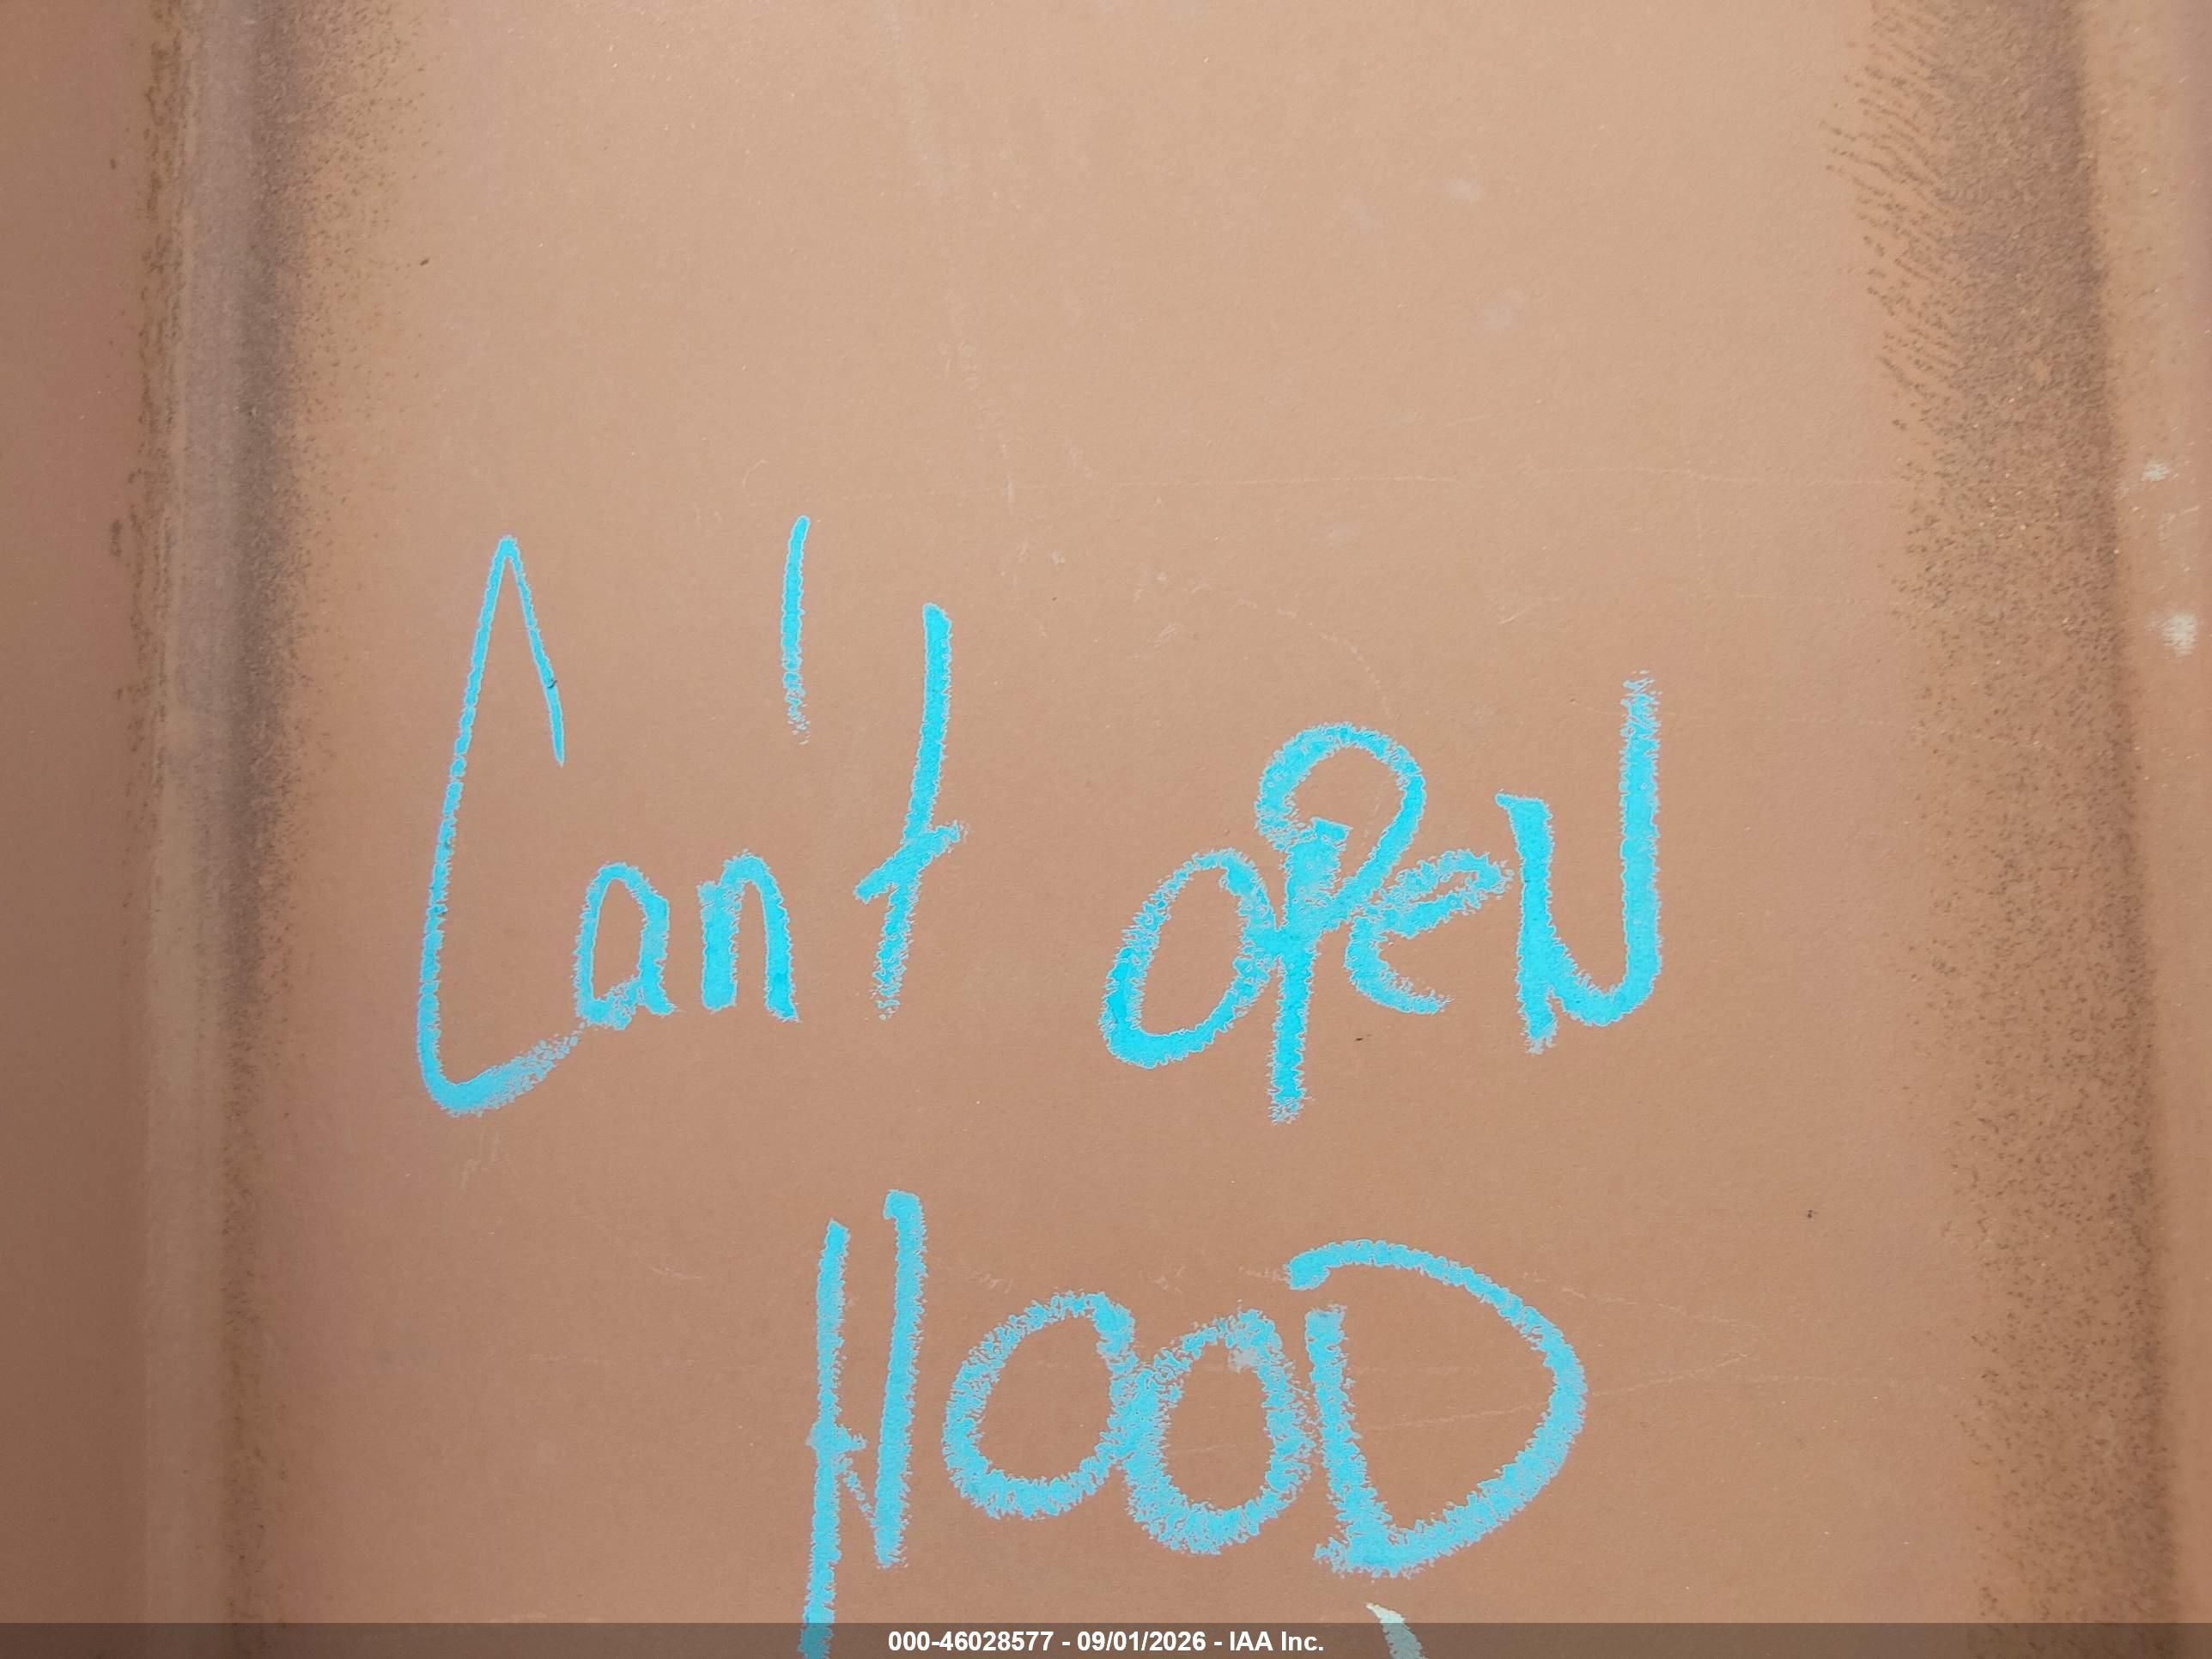 Can't open
HOOD
000-46028577 - 09/01/2026 - IAA Inc.